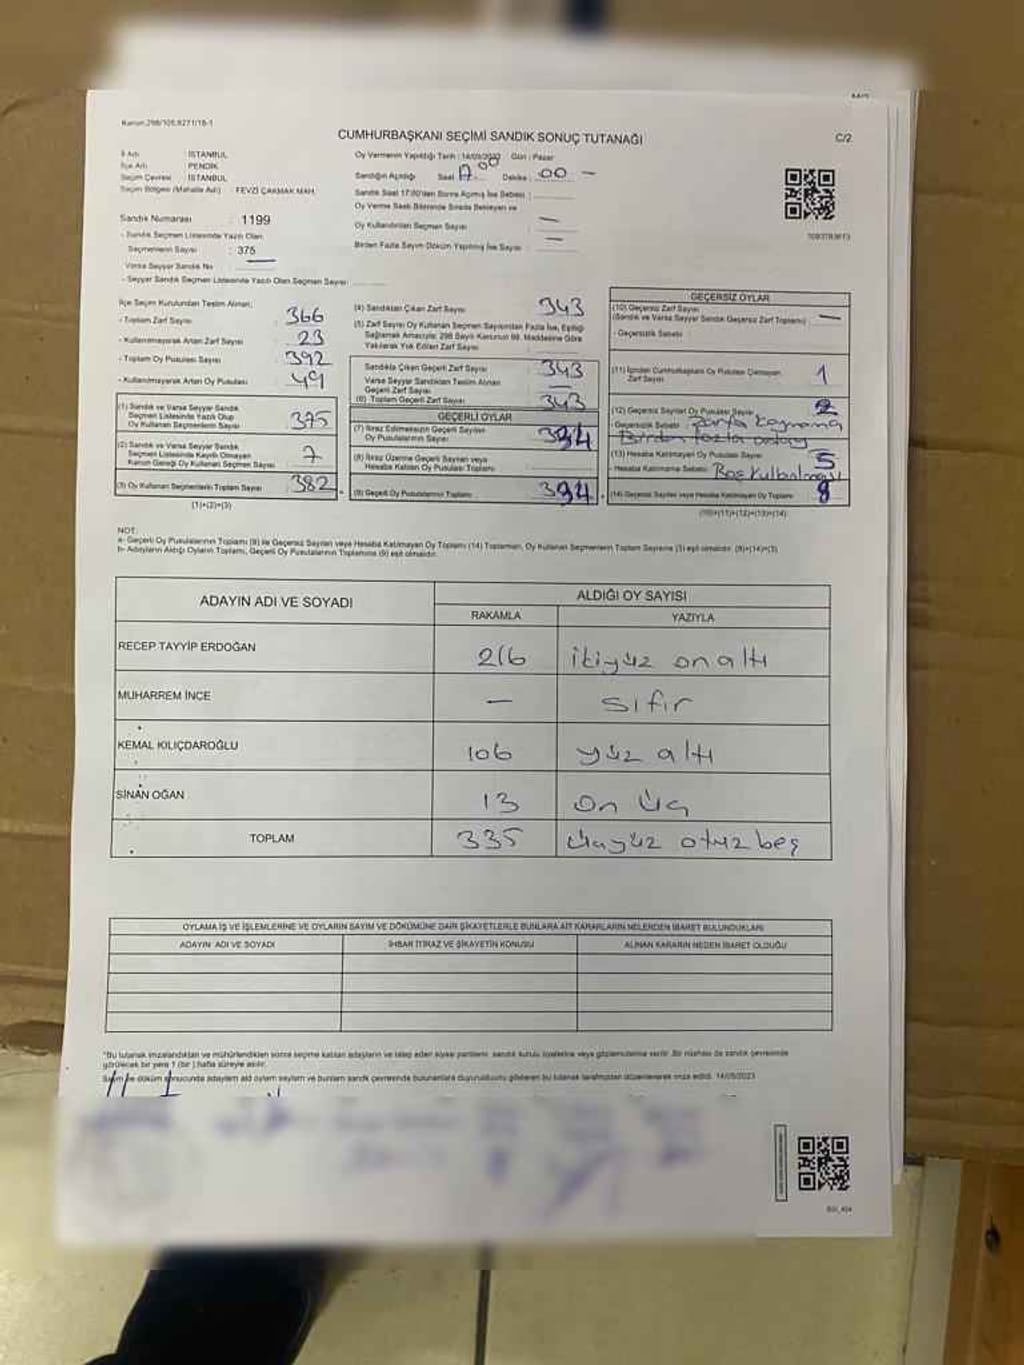 Kanun:298/105,6271/16-1
CUMHURBAŞKANI SEÇİMİ SANDIK SONUÇ TUTANAĞI
C/2
İl Adı : İSTANBUL
İlçe Adı : PENDİK
Seçim Çevresi : İSTANBUL
Seçim Bölgesi (Mahalle Adı) : FEVZİ ÇAKMAK MAH.
Sandık Numarası : 1199
- Sandık Seçmen Listesinde Yazılı Olan
Seçmenlerin Sayısı : 375
Varsa Seyyar Sandık No
- Seyyar Sandık Seçmen Listesinde Yazılı Olan Seçmen Sayısı
Oy Vermenin Yapıldığı Tarih : 14/05/2023 Gün : Pazar
Sandığın Açıldığı Saat Dakika : 00 -
Sandık Saat 17:00'den Sonra Açılmış İse Sebebi :
Oy Verme Saati Bitiminde Sırada Bekleyen ve
Oy Kullandırılan Seçmen Sayısı —
Birden Fazla Sayım Döküm Yapılmış İse Sayısı —
İlçe Seçim Kurulundan Teslim Alınan;
- Toplam Zarf Sayısı 366
- Kullanılmayarak Artan Zarf Sayısı 23
- Toplam Oy Pusulası Sayısı 392
- Kullanılmayarak Artan Oy Pusulası 49
(1) Sandık ve Varsa Seyyar Sandık
Seçmen Listesinde Yazılı Olup
Oy Kullanan Seçmenlerin Sayısı 375
(2) Sandık ve Varsa Seyyar Sandık
Seçmen Listesinde Kayıtlı Olmayan
Kanun Gereği Oy Kullanan Seçmen Sayısı 7
(3) Oy Kullanan Seçmenlerin Toplam Sayısı 382
(1)+(2)=(3)
(4) Sandıktan Çıkan Zarf Sayısı 343
(5) Zarf Sayısı Oy Kullanan Seçmen Sayısından Fazla İse, Eşitliği
Sağlamak Amacıyla; 298 Sayılı Kanunun 98. Maddesine Göre
Yakılarak Yok Edilen Zarf Sayısı
Sandıkta Çıkan Geçerli Zarf Sayısı 343
Varsa Seyyar Sandıktan Teslim Alınan
Geçerli Zarf Sayısı —
(6) Toplam Geçerli Zarf Sayısı 343
GEÇERLİ OYLAR
(7) İtiraz Edilmeksizin Geçerli Sayılan
Oy Pusulalarının Sayısı
(8) İtiraz Üzerine Geçerli Sayılan veya
Hesaba Katılan Oy Pusulası Toplamı
(9) Geçerli Oy Pusulalarının Toplamı
GEÇERSİZ OYLAR
(10) Geçersiz Zarf Sayısı
(Sandık ve Varsa Seyyar Sandık Geçersiz Zarf Toplamı) —
- Geçersizlik Sebebi
(11) İçinden Cumhurbaşkanı Oy Pusulası Çıkmayan
Zarf Sayısı 1
(12) Geçersiz Sayılan Oy Pusulası Sayısı 2
- Geçersizlik Sebebi
Birden fazla
(13) Hesaba Katılmayan Oy Pusulası Sayısı 5
- Hesaba Katılmama Sebebi : Boş
(14) Geçersiz Sayılan veya Hesaba Katılmayan Oy Toplamı 8
(10)+(11)+(12)+(13)=(14)
NOT:
a- Geçerli Oy Pusulalarının Toplamı (9) ile Geçersiz Sayılan veya Hesaba Katılmayan Oy Toplamı (14) Toplamları, Oy Kullanan Seçmenlerin Toplam Sayısına (3) eşit olmalıdır. (9)+(14)=(3)
b- Adayların Aldığı Oyların Toplamı, Geçerli Oy Pusulalarının Toplamına (9) eşit olmalıdır.
ADAYIN ADI VE SOYADI ALDIĞI OY SAYISI
RAKAMLA YAZIYLA
RECEP TAYYİP ERDOĞAN 216 ikiyüz onaltı
MUHARREM İNCE — sıfır
KEMAL KILIÇDAROĞLU 106 yüz altı
SİNAN OĞAN 13 on üç
TOPLAM 335 üçyüz otuzbeş
OYLAMA İŞ VE İŞLEMLERİNE VE OYLARIN SAYIM VE DÖKÜMÜNE DAİR ŞİKAYETLERLE BUNLARA AİT KARARLARIN NELERDEN İBARET BULUNDUKLARI
ADAYIN ADI VE SOYADI İHBAR İTİRAZ VE ŞİKAYETİN KONUSU ALINAN KARARIN NEDEN İBARET OLDUĞU
*Bu tutanak imzalandıktan ve mühürlendikten sonra seçime katılan adayların ve talep eden siyasi partilerin sandık kurulu üyelerine veya gözlemcilerine verilir. Bir nüshası da sandık çevresinde
görülecek bir yere 1 (bir) hafta süreyle asılır.